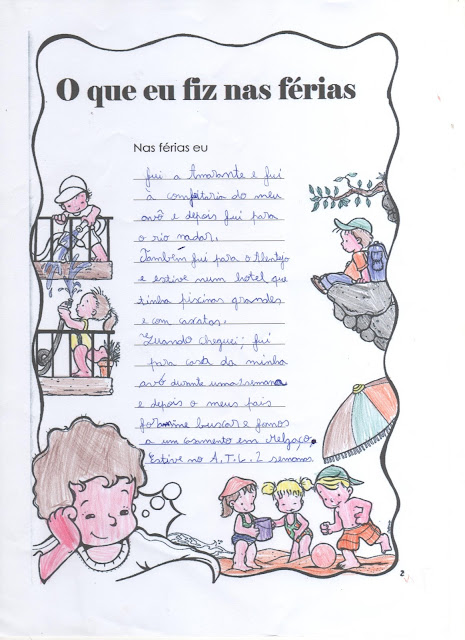 O que eu fiz nas férias
Nas férias eu
fui a Amarante e fui
à confeitaria do meu
avô e depois fui para
o rio nadar.
Também fui para o Alentejo
e estive num hotel que
tinha piscinas grandes
e com cascatas.
Quando cheguei; fui
para casa da minha
avó durante uma semana
e depois o meus pais
foram me buscar e fomos
a um casamento em Melgaço.
Estive no A.T.L. 2 semanas.
2